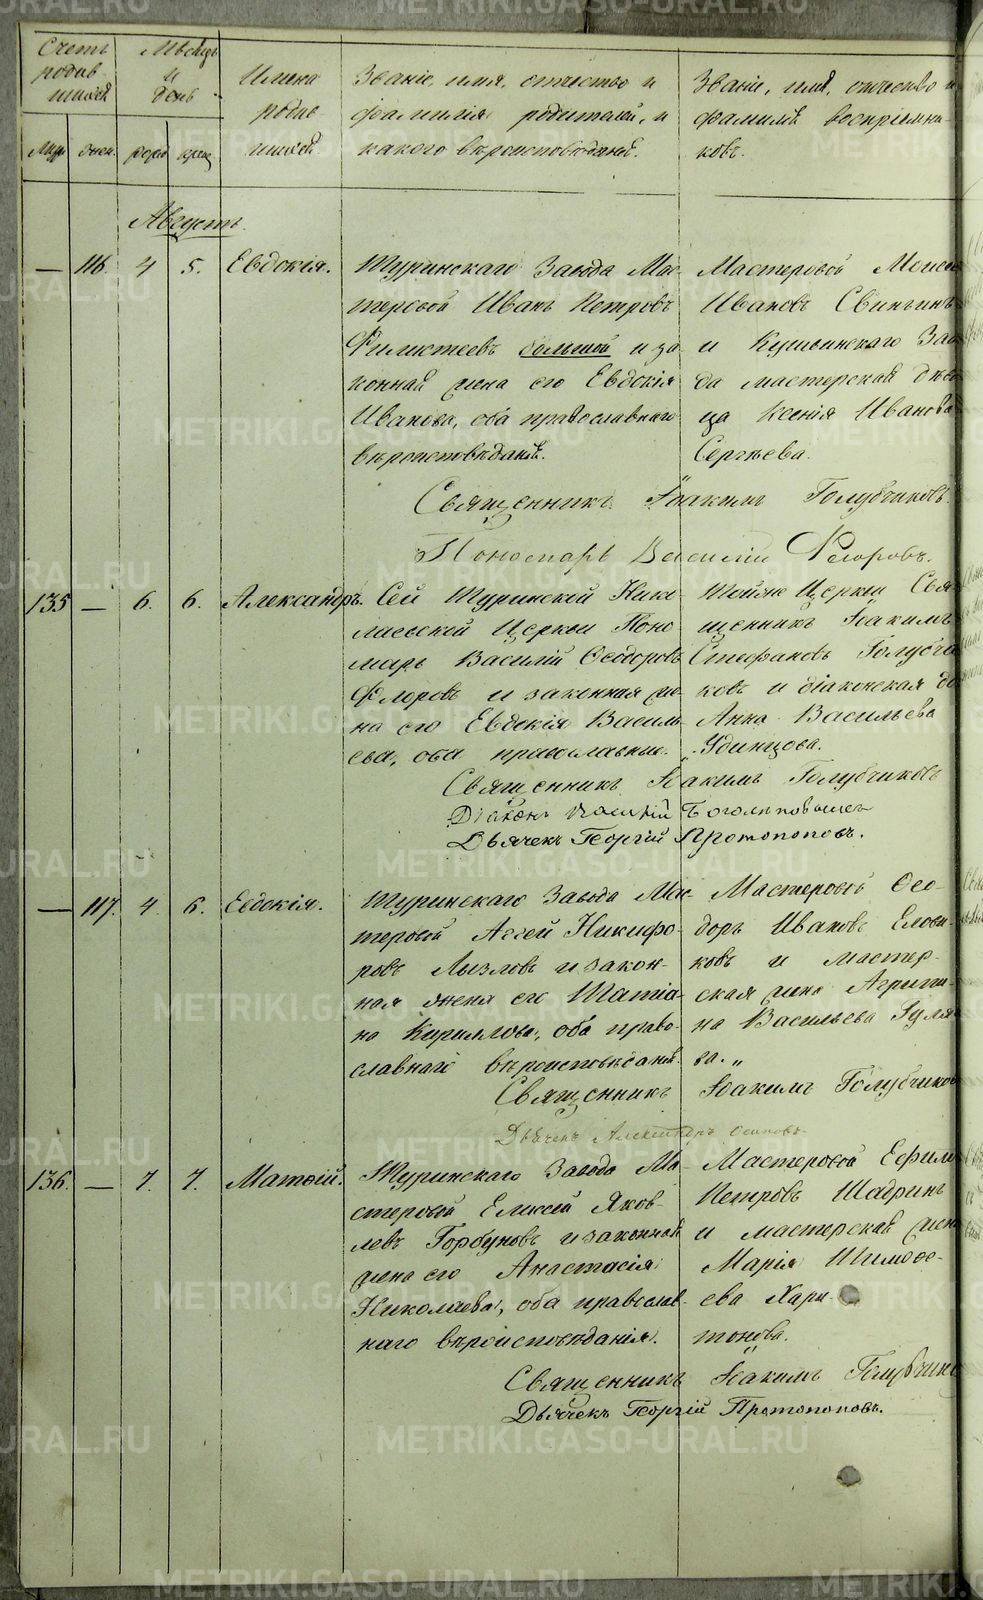 Счетъ родив шихся
Мѣсяцъ и день
Имена родив- шихся.
Званіе, имя, отчество и фамилія родителей, и какого вѣроисповѣданія.
Званіе, имя, отчество и фамилія воспріемни- ковъ.
муж. жен. рожд. крещ.
Августъ.
— 116. 4 5. Евдокія.
Туринскаго Завода Мас-
теровой Иванъ Петровъ
Филистеевъ большой и за
конная жена его Евдокія
Иванова, оба православнаго
вѣроисповѣданія.
Мастеровой Моисей
Ивановъ Свиньинъ
и Кушвинскаго Заво
да мастерская дѣви
ца Ксенія Иванова
Сергѣева.
Священникъ Іоакимъ Голубчиковъ
Пономарь Василій Флоровъ.
135 — 6. 6. Александръ.
Сей Туринской Нико
лаевской Церкви Поно
марь Василій Ѳеодоровъ
Флоровъ и законная же
на его Евдокія Василь
ева, оба православные.
Тойже Церкви Свя
щенникъ Іоакимъ
Стефановъ Голубчи
ковъ и діаконская до
Анна Васильева
Удинцова.
Священникъ Іоакимъ Голубчиковъ
Діаконъ
Дьячекъ Георгій Протопоповъ.
— 117. 4. 6. Евдокія.
Туринскаго Завода Мас-
теровой Аггей Никифо-
ровъ Лызловъ и закон-
ная жена его Татіа-
на Кириллова, оба право-
славнаго вѣроисповѣданія.
Мастеровой Ѳео-
доръ Ивановъ Елови-
ковъ и мастер-
ская жена Агрипи-
на Васильева Гуля
ва.„
Священникъ Іоакимъ Голубчиковъ
Дьячекъ Александръ Осиповъ.
136. — 7. 7. Матѳій.
Туринскаго Завода Ма-
стеровой Елисей Яков-
левъ Горбуновъ и законная
жена его Анастасія
Николаева, оба православ-
наго вѣроисповѣданія.
Мастеровой Ефимъ
Петровъ Шадринъ
и мастерская жена
Марія Тимоѳе-
ева Хари-
тонова.
Священникъ Іоакимъ Голубчико
Дьячекъ Георгій Протопоповъ.
METRIKI.GASO-URAL.RU